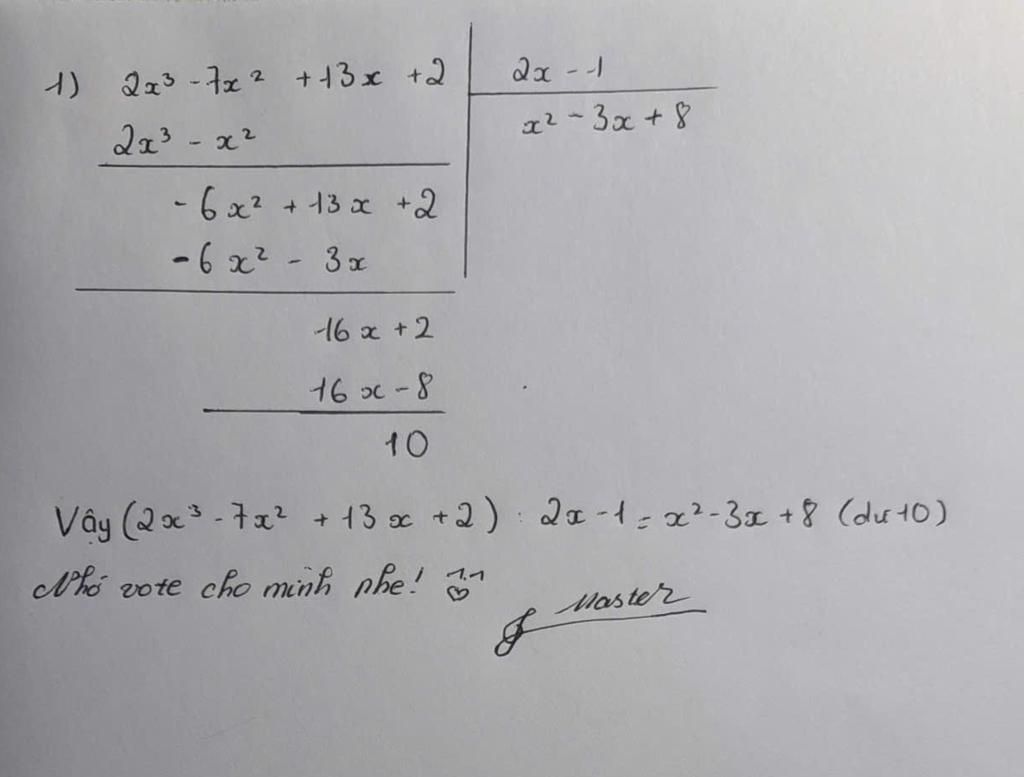 1) 2x³ - 7x² + 13x + 2 | 2x - 1
2x³ - x² | x² - 3x + 8
- 6x² + 13x + 2
- 6x² - 3x
16x + 2
16x - 8
10
Vậy (2x³ - 7x² + 13x + 2) : 2x - 1 = x² - 3x + 8 (dư 10)
Nhớ vote cho mình nhe!
Master